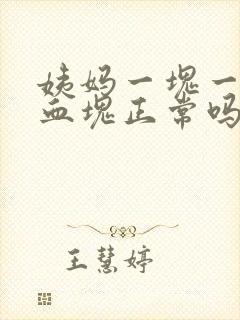 姨妈一块一
血块正常吗
王慧婷